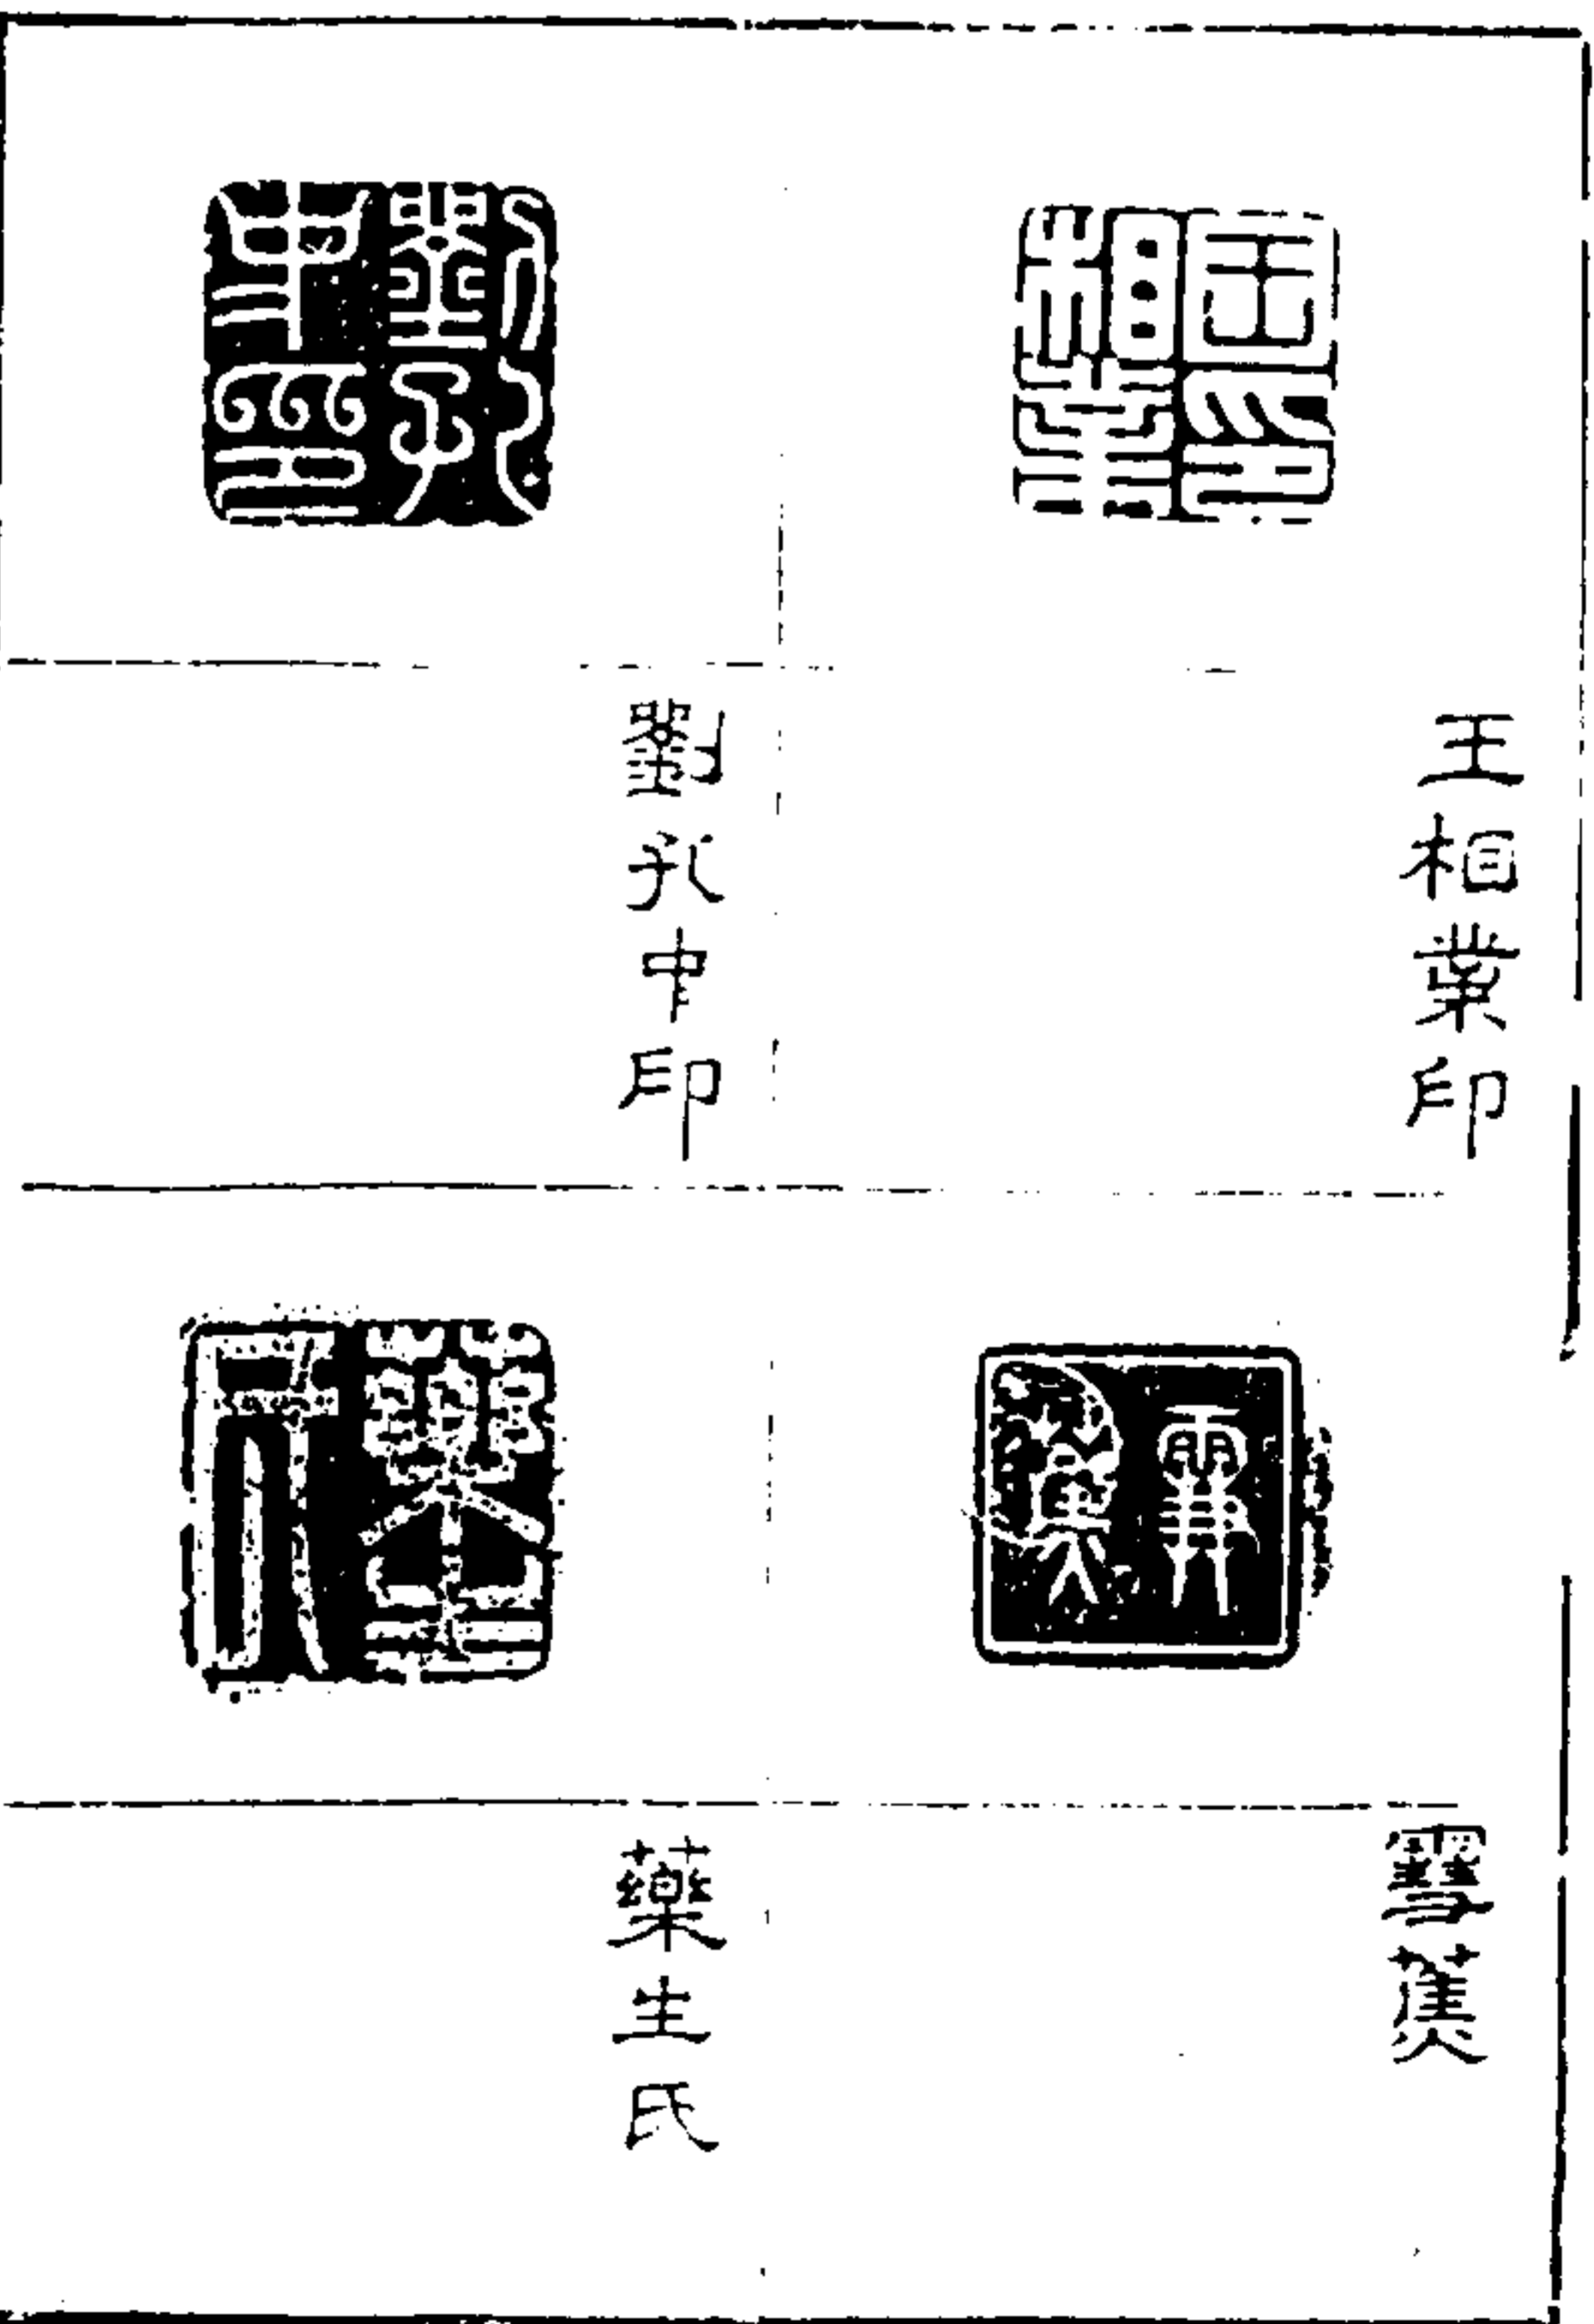 王相業印
劉孔中印
雪蕉
藥生氏